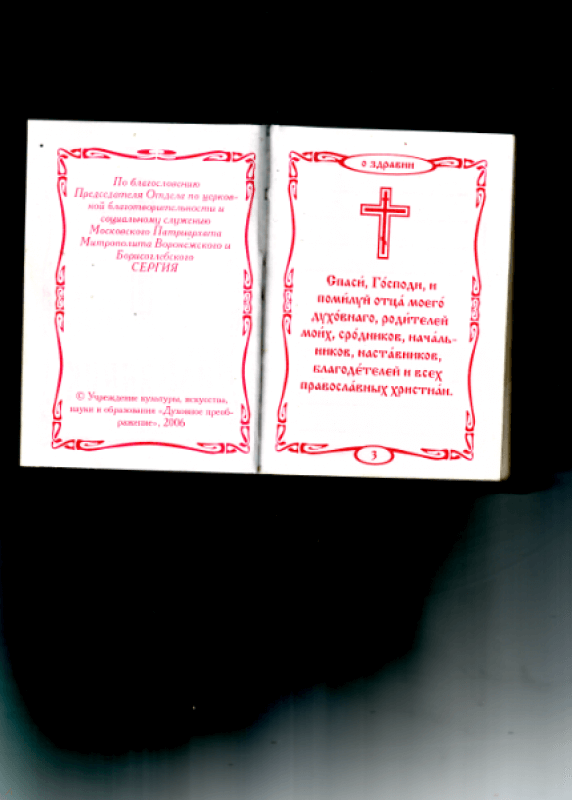 По благословению
Председателя Отдела по церков-
ной благотворительности и
социальному служению
Московского Патриархата
Митрополита Воронежского и
Борисоглебского
СЕРГИЯ
© Учреждение культуры, искусства,
науки и образования «Духовное преоб-
ражение», 2006
о здравии
Спаси́, Го́споди, и
поми́луй отца́ моего́
духо́внаго, роди́телей
мои́х, сро́дников, нача́ль-
ников, наста́вников,
благоде́телей и всех
правосла́вных христиа́н.
3